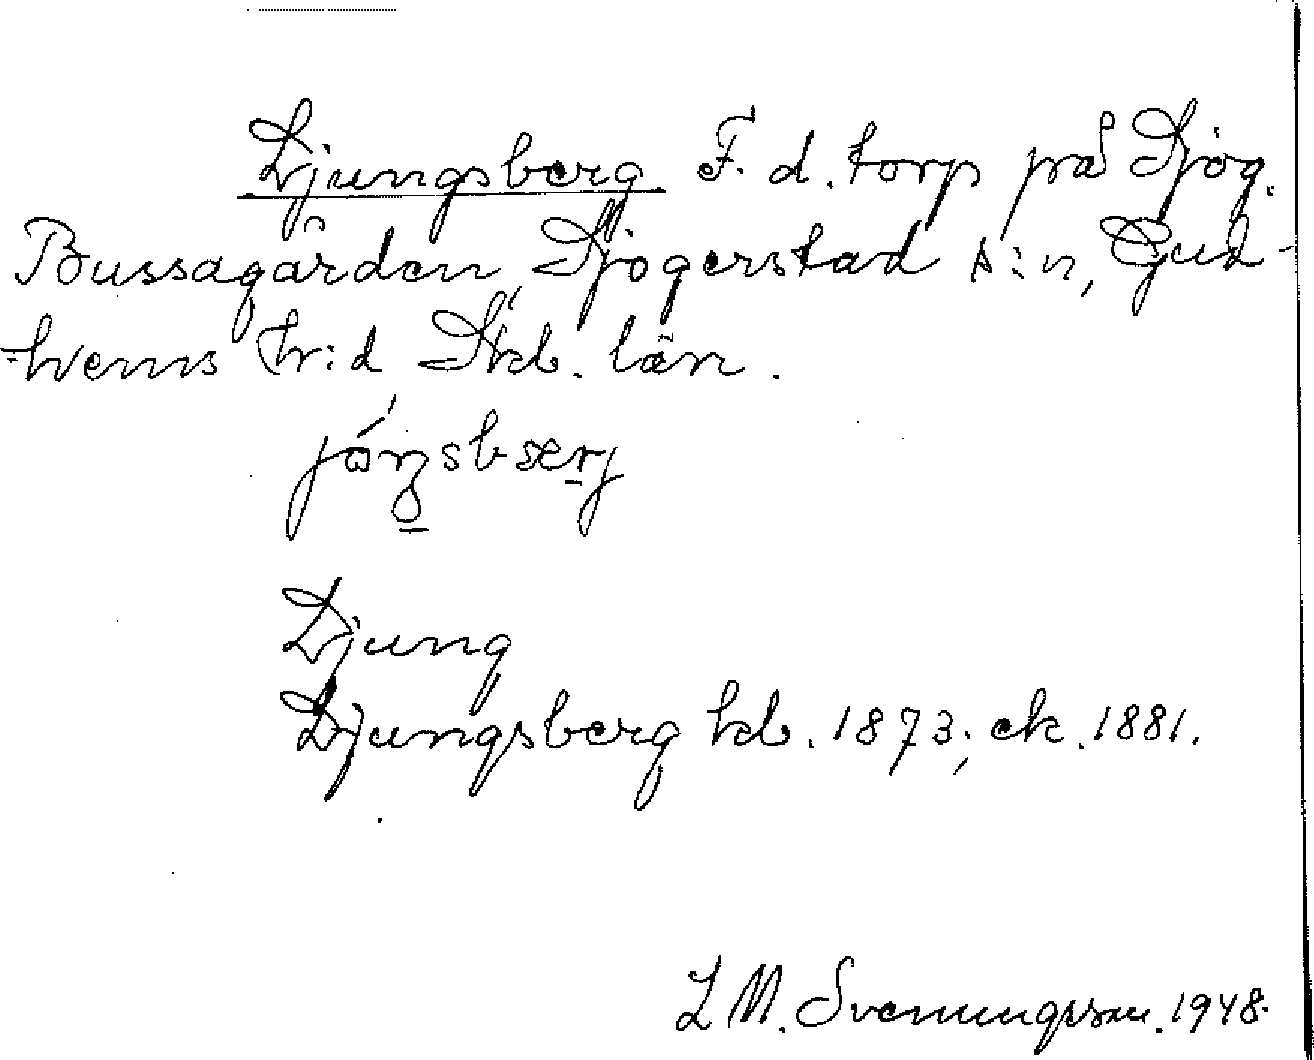 Ljungsberg F. d. torp på Sjög.
Bussagården, Sjögerstad s:n, Gud-
hems hr:d Skb. län.
Ljung
Ljungsberg hd. 1873; ek. 1881.
L M. Svenungsson. 1948.